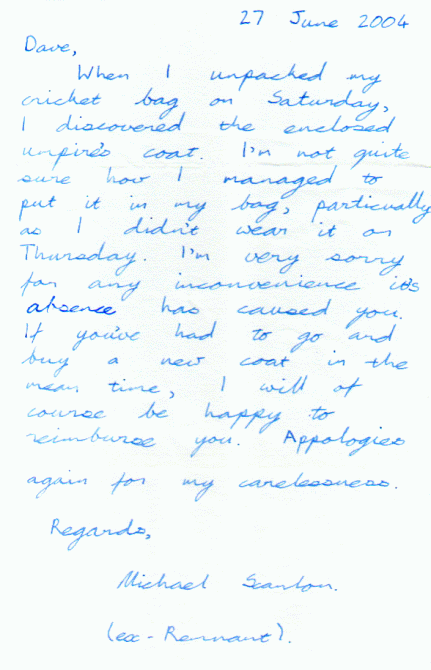 27 June 2004
Dave,
When I unpacked my
cricket bag on Saturday,
I discovered the enclosed
umpire's coat. I'm not quite
sure how I managed to
put it in my bag, particually
as I didn't wear it on
Thursday. I'm very sorry
for any inconvenience it's
absence has caused you.
If you've had to go and
buy a new coat in the
mean time, I will of
course be happy to
reimburse you. Appologies
again for my carelessness.
Regards,
Michael Scanlon.
(ex-Remnant).